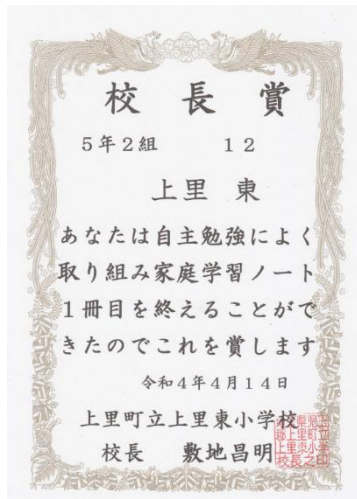 校長賞
5年2組 12
上里 東
あなたは自主勉強によく
取り組み家庭学習ノート
1冊目を終えることがで
きたのでこれを賞します
令和4年4月14日
上里町立上里東小学校
校長 敷地昌明